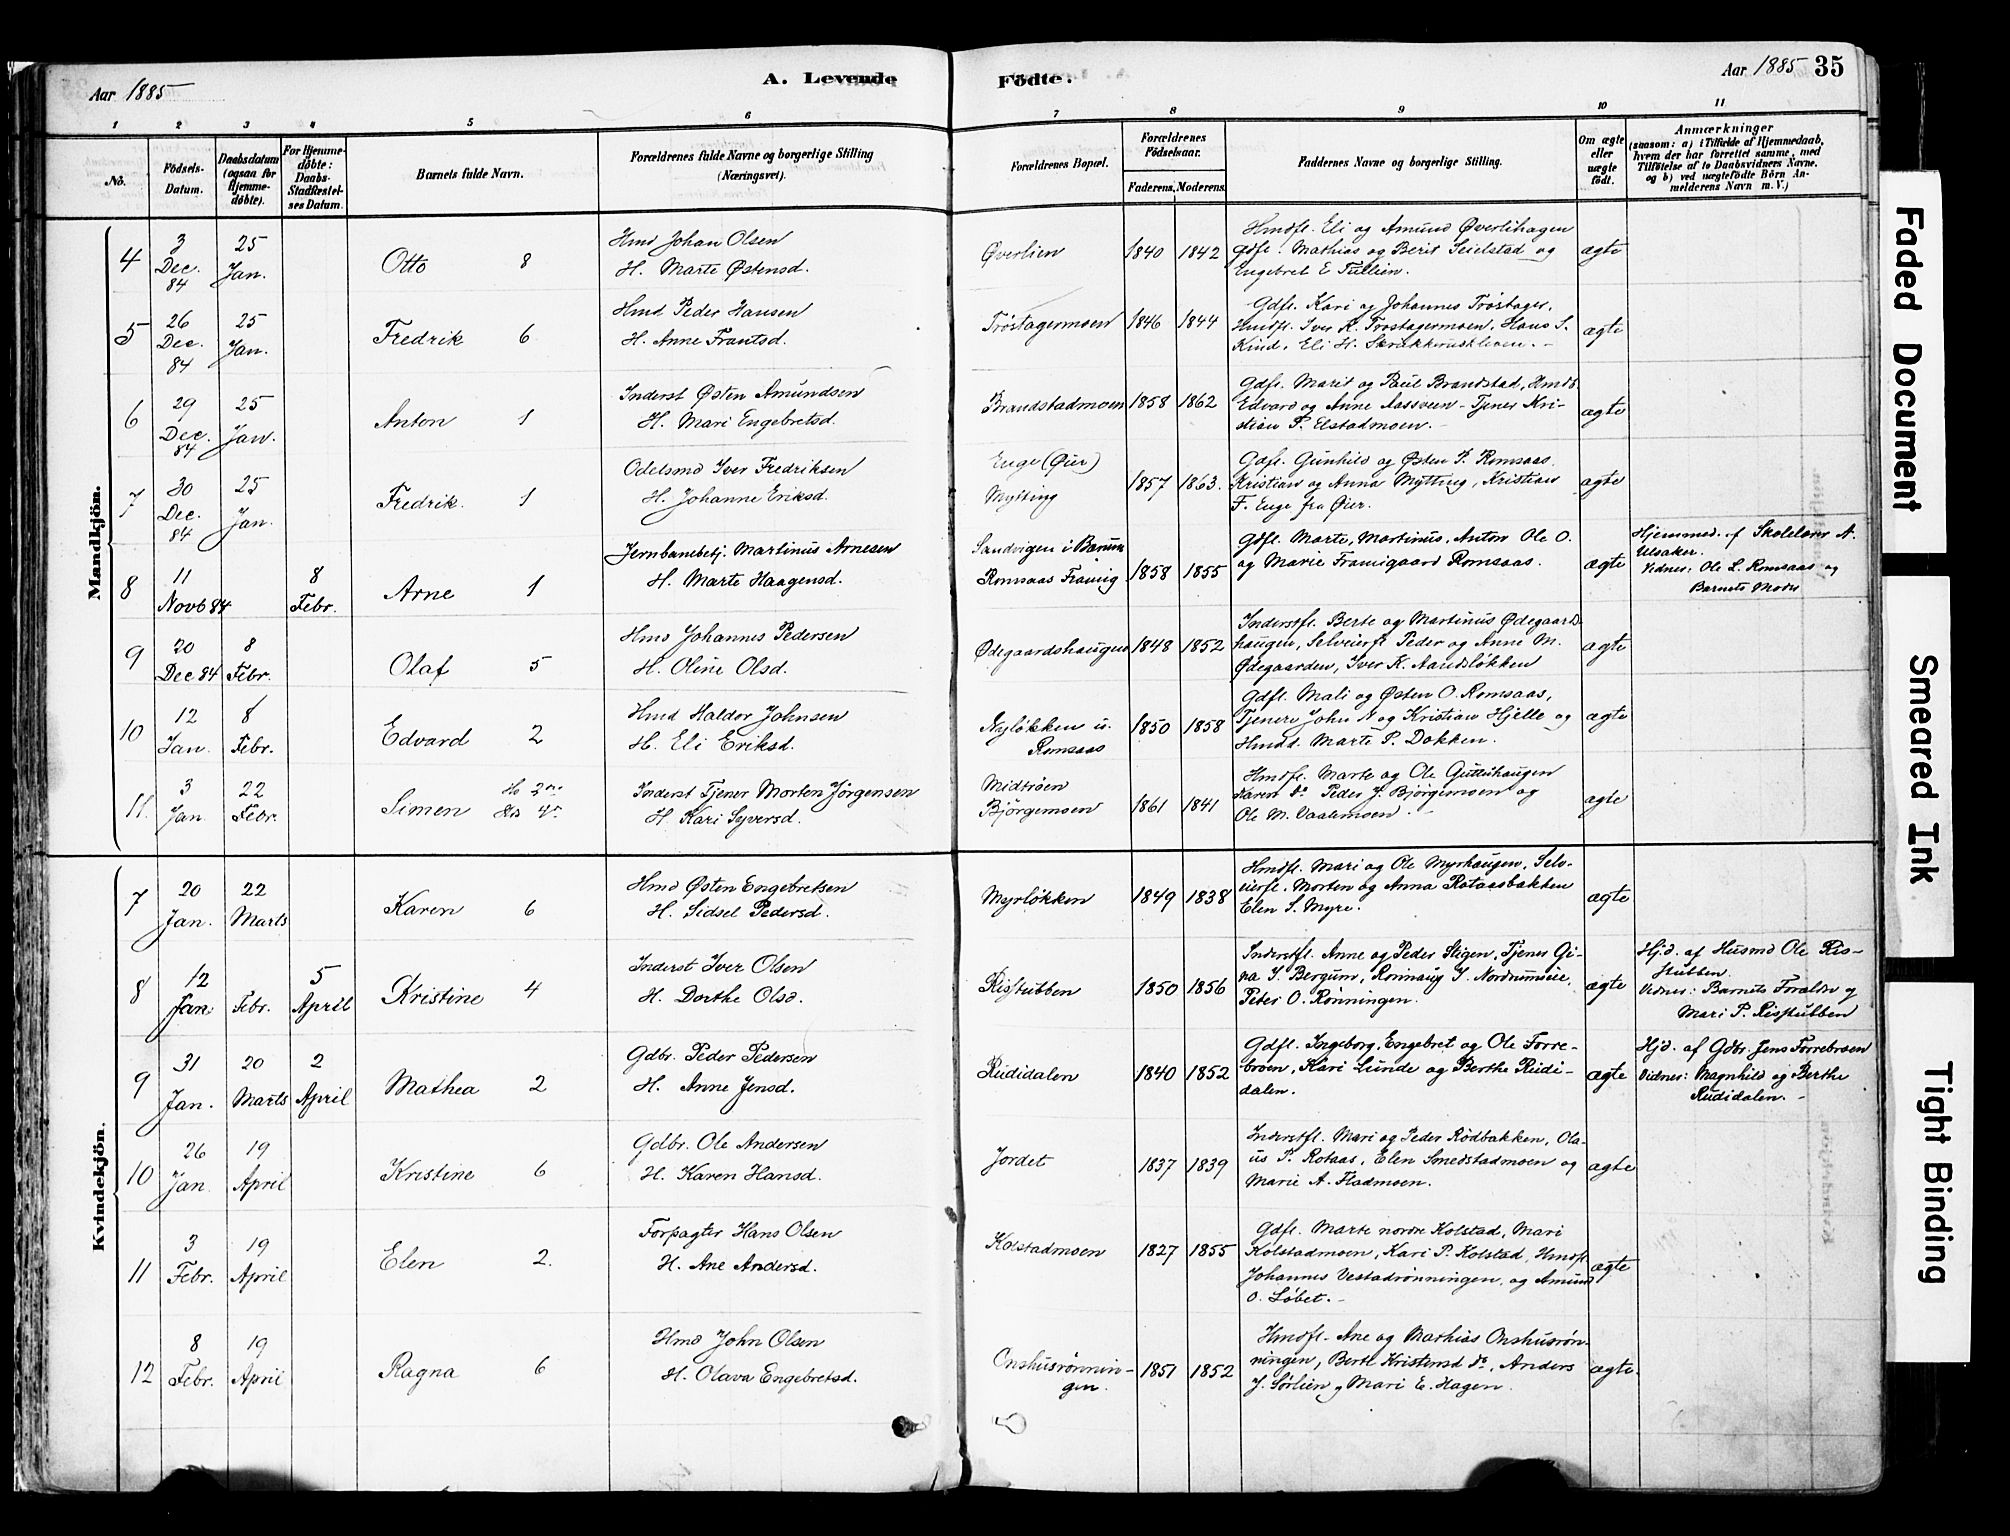 Aar 1885
A. Levende
Födte.
Aar 1885 35
1 2 3 4 5 6 7 8 9 10 11
No.
Födsels-
Datum.
Daabsdatum
(ogsaa for
Hjemme-
döbte).
For Hjemme-
döbte:
Daabs-
Stadfæstel-
ses Datum.
Barnets fulde Navn.
Forældrenes fulde Navne og borgerlige Stilling
(Næringsvei).
Forældrenes Bopæl.
Forældrenes
Födselsaar.
Faderens. Moderens.
Faddernes Navne og borgerlige Stilling.
Om ægte
eller
uægte
födt.
Anmærkninger
(saasom: a) i Tilfælde af Hjemmedaab,
hvem der har forrettet samme, med
Tilföielse af to Daabsvidners Navne,
og b) ved uægtefödte Börn An-
melderens Navn m. V.)
Mandkjön.
4
3
Dec.
84
25
Jan.
Otto 8
Hmd Johan Olsen
H. Marte Østensd.
Øverlien
1840 1842
Hmdfl. Eli og Amund Øverlihagen
Gdfl. Mathias og Berit Seielstad og
Engebret E Tullien.
ægte
5
26
Dec.
84
25
Jan.
Fredrik 6
Hmd Peder Hansen
H. Anne Frantsd.
Tröstagermoen
1846 1844
Gdfl. Kari og Johannes Tröstager,
Hmdfl. Iver K. Trostagermoen, Hans S.
Kind, Eli H. Skrukkerudkleven. -
ægte
6
29
Dec.
84
25
Jan.
Anton 1
Inderst Østen Amundsen
H. Mari Engebretsd.
Brandstadmoen
1858 1862
Gdfl. Marit og Paul Brandstad, Hmdf
Edvard og Anne Aassveen - Tjener Kri-
stian P. Elstadmoen. -
ægte
7
30
Dec.
84
25
Jan.
Fredrik. 1
Odelsmd Iver Fredriksen
H. Johanne Eriksd.
Enge (Øier)
Mytting
1857 1863.
Gdfl. Gunhild og Østen P. Romsaas.
Kristian og Anna Mytting, Kristian
F. Enge fra Øier.
ægte
8
11
Novb 84
8
Febr.
Arne 1
Jernbanebetj. Martinus Arnesen
H. Marte Haagensd.
Sandvigen i Bærum
Romsaas Framig
1858 1855
Gdfl. Marte, Martinus, Anton Ole O.
og Marie Framigaard Romsaas.
ægte
Hjemmed. af Skolelærer A.
Ulsaker.
Vidner: Ole L. Romsaas og
Barnets Moder
9
20
Dec 84
8
Febr.
Olaf 5
Hmd Johannes Pedersen
H. Oline Olsd.
Ødegaardshaugen
1848 1852
Inderstfl. Berte og Martinus Ødegaards
haugen, Selveierfl Peder og Anne M.
Ødegaarden, Iver K. Aandsløkken
ægte
10
12
Jan.
8
Febr.
Edvard 2
Hmd Haldor Johnsen
H. Eli Eriksd.
Nyløkken u.
Romsaas
1850 1858
Gdfl. Mali og Østen O. Romsaas,
Tjenere John N og Kristian Hjelle og
Hmdd. Marte P. Dokken.
ægte
11.
3
Jan
22
Febr.
Simen
Inderst Tjener Morten Jørgensen
H. Kari Syversd.
Midtröen
Björgemoen
1861 1841
Hmdfl. Marte og Ole Guttuhaugen
Karen do Peder J. Bjørgemoen og
Ole M. Vaalemoen. -
ægte
Kvindekjön.
7
20
Jan.
22
Marts
Karen 6
Hmd Østen Engebretsen
H. Sidsel Pedersd.
Myrløkken
1849 1838
Hmdfl. Mari og Ole Myrhaugen, Selv-
eierfl. Morten og Anna Rotaasbakken
Elen S. Myre.
ægte
8
12
Jan
Febr.
5
April
Kristine 4
Inderst Iver Olsen
H. Dorthe Olsd.
Risstubben
1850 1856
Inderstfl. Anne og Peder Stigen, Tjener Gi-
na I. Bergum, Rønnaug I. Nordrumseie,
Peter O. Rønningen.
ægte
Hjd. af Husmd Ole Ris-
stubben
Vidner: Barnets Forældre og
Mari P. Risstubben
9
31
Jan.
20
Marts
2
April
Mathea 2
Gdbr. Peder Pedersen
H. Anne Jensd.
Rudidalen
1840 1852
Gdfl. Ingeborg, Engebret og Ole Forre-
broen, Kari Lunde og Berthe Rudi-
dalen.
ægte
Hjd. af Gdbr. Jens Forrebroen
Vidner: Magnhild og Berthe
Rudidalen. -
10
26
Jan
19
April
Kristine 6
Gdbr. Ole Andersen
H. Karen Hansd.
Jordet
1837 1839
Inderstfl. Mari og Peder Rödbakken, Ola-
us P. Rotaas, Elen Smedstadmoen og
Marie A. Fladmoen.
ægte
11
3
Febr.
19
April
Elen 2.
Forpagter Hans Olsen
H. Ane Andersd.
Kolstadmoen
1827 1855
Gdfl. Marte nordre Kolstad, Mari
Kolstadmoen, Kari P. Kolstad, Hmdfl.
Johannes Vestadrønningen, og Amund
O. Løbet. -
ægte
12
8
Febr.
19
April
Ragna 6
Hmd John Olsen
H. Olava Engebretsd.
Onshusrønnin-
gen.
1851 1852
Hmdfl. Ane og Mathias Onshusrøn-
ningen, Berte Kristensd do, Anders
J. Sørlien og Mari E. Hagen.
ægte.
Faded Document
Smeared Ink
Tight Binding